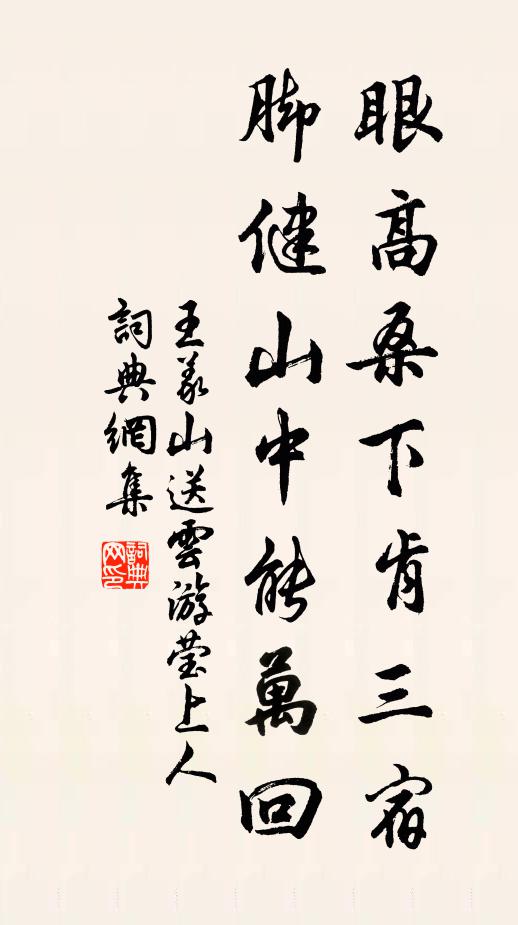 眼高桑下肯三宿
脚健山中能萬回
王義山送雲游瑩上人
詞典網集
詞典网印